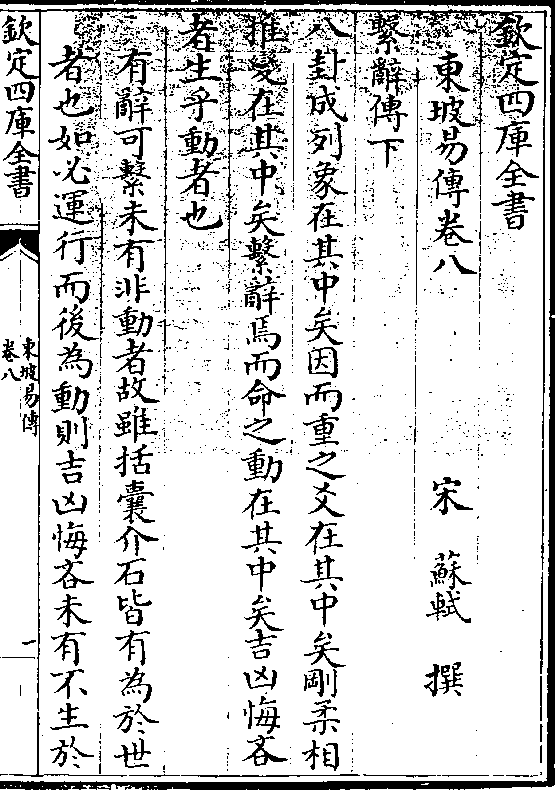 欽定四庫全書
東坡易傳卷八
宋 蘇軾 撰
繫辭傳下
八卦成列象在其中矣因而重之爻在其中矣剛柔相
推變在其中矣繫辭焉而命之動在其中矣吉凶悔吝
者生乎動者也
有辭可繫未有非動者故雖括囊介石皆有為於世
者也如必運行而後為動則吉凶悔吝未有不生於
欽定四庫全書
東坡易傳
卷八
一